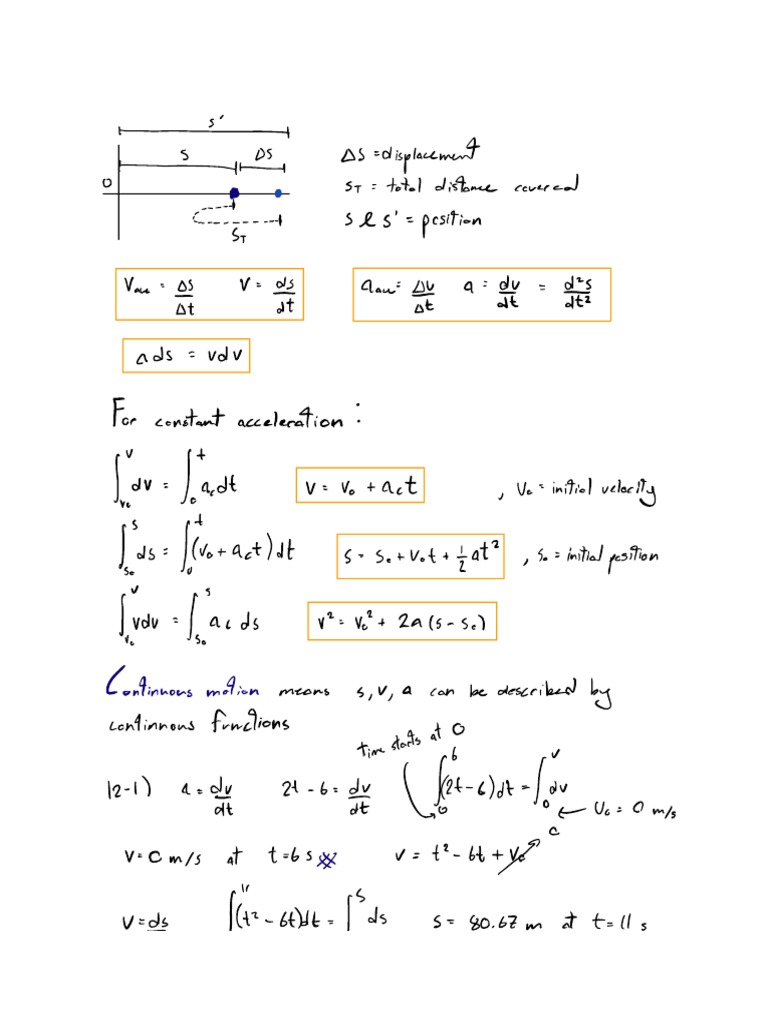 s'
s Δs
0
s_T
Δs = displacement
s_T = total distance covered
s & s' = position
V_ave = Δs/Δt V = ds/dt
a_ave = Δv/Δt a = dv/dt = d²s/dt²
a ds = v dv
For constant acceleration:
∫_{v₀}^{v} dv = ∫_0^t a_c dt v = v₀ + a_c t , V₀ = initial velocity
∫_{s₀}^{s} ds = ∫_0^t (v₀ + a_c t) dt s = s₀ + v₀t + 1/2 at² , s₀ = initial position
∫_{v₀}^{v} vdv = ∫_{s₀}^{s} a_c ds v² = v₀² + 2a(s - s₀)
Continuous motion means s, v, a can be described by
continuous functions
time starts at 0
12-1) a = dv/dt 2t - 6 = dv/dt ∫_0^6 (2t - 6)dt = ∫_0^v dv ← V₀ = 0 m/s
v = 0 m/s at t = 6 s v = t² - 6t + V₀ 0
v = ds ∫^{11} (t² - 6t)dt = ∫^s ds s = 80.67 m at t = 11 s